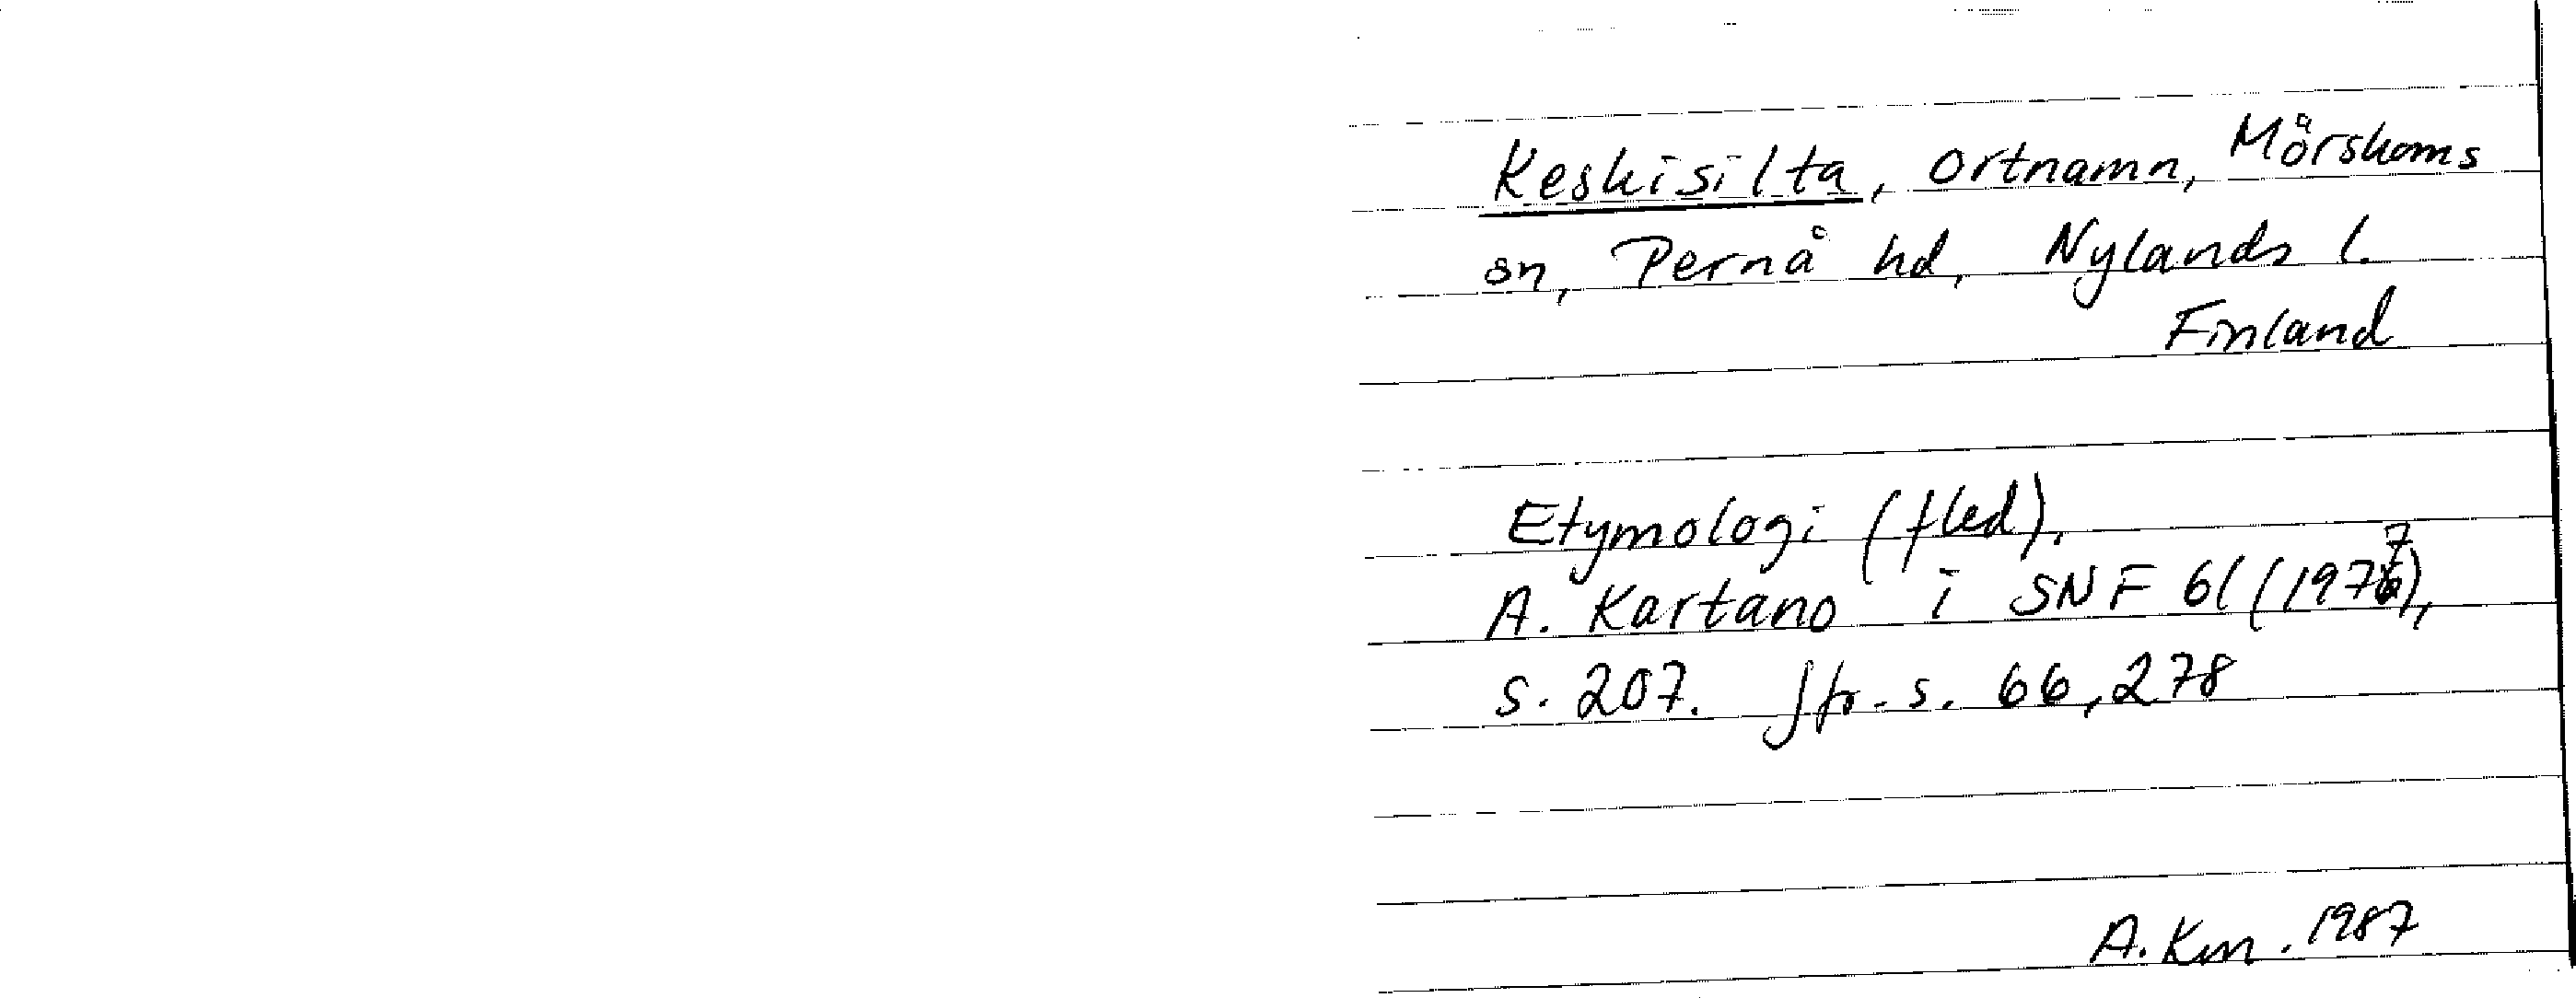 Keskisilta, ortnamn, Mörskoms
sn, Pernå hd, Nylands l.
Finland
Etymologi (fled),
A. Kartano i SNF 61 (1977),
s. 207. Jfr s. 66, 278
A. Km. 1987